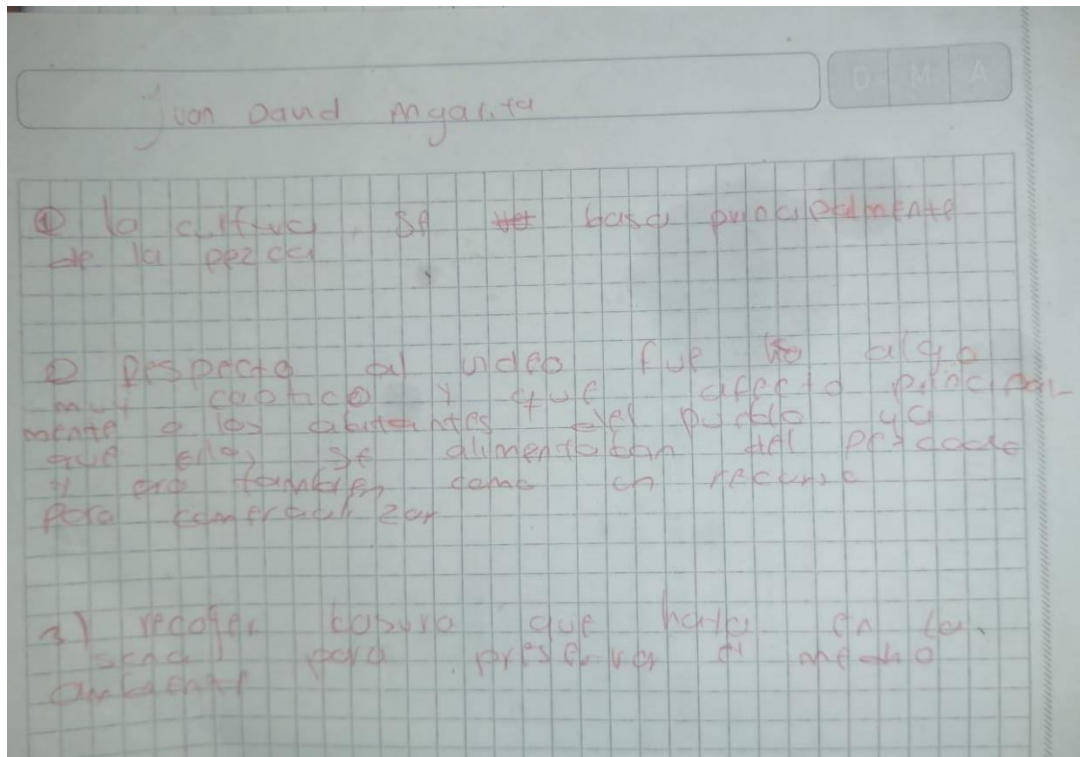 D M A
Juan David Angarita
① la cultura se basa principalmente
de la pezca
② Respecto al video fue algo
muy caotico y que afecto principal-
mente a los abitantes del pueblo ya
que ellos se alimentaban del pescado
y era tambien como un recurso
para comercializar
3) recoger basura que haya en la
sena para preservar el medio
ambiente